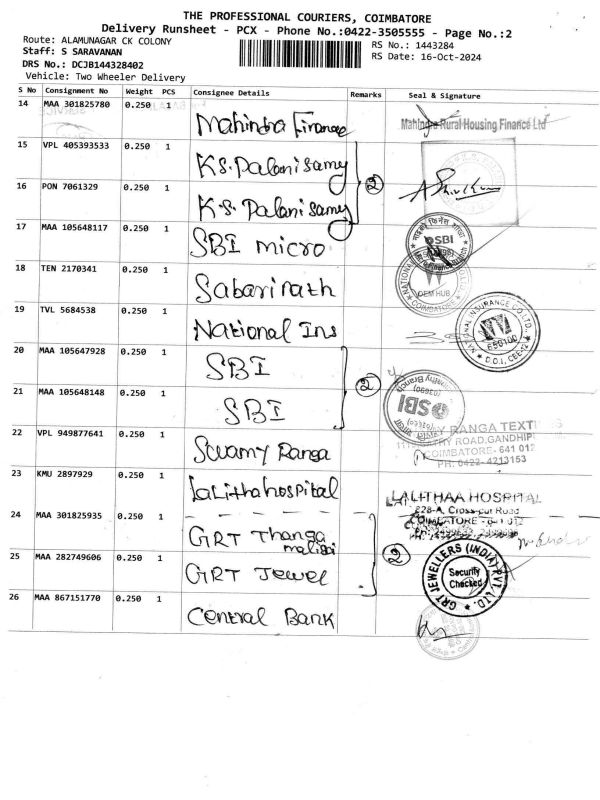 THE PROFESSIONAL COURIERS, COIMBATORE
Delivery Runsheet - PCX - Phone No.:0422-3505555 - Page No.:2
Route: ALAMUNAGAR CK COLONY
RS No.: 1443284
Staff: S SARAVANAN
RS Date: 16-Oct-2024
DRS No.: DCJB144328402
Vehicle: Two Wheeler Delivery
S No Consignment No Weight PCS Consignee Details Remarks Seal & Signature
14 MAA 301825780 0.250 1 Mahindra Finance Mahindra Rural Housing Finance Ltd
15 VPL 405393533 0.250 1 K.S. Palanisamy
2
16 PON 7061329 0.250 1 K.S. Palanisamy
17 MAA 105648117 0.250 1 SBI micro SBI
18 TEN 2170341 0.250 1 Sabarinath
OEM HUB
COIMBATORE
19 TVL 5684538 0.250 1 National Ins NATIONAL INSURANCE CO.LTD.
20 MAA 105647928 0.250 1 SBI
2
21 MAA 105648148 0.250 1 SBI SBI
22 VPL 949877641 0.250 1 Swamy Ranga RANGA TEXTILES
ROAD,GANDHIP
COIMBATORE- 641 012
PH: 0422- 4213153
23 KMU 2897929 0.250 1 Lalitha hospital LALITHAA HOSPITAL
328-A, Cross-cut Road
COIMBATORE - 641 012
24 MAA 301825935 0.250 1 GRT Thanga maligai
2
25 MAA 282749606 0.250 1 GRT Jewel GRT JEWELLERS (INDIA) PVT. LTD.
Security
Checked
26 MAA 867151770 0.250 1 Central Bank